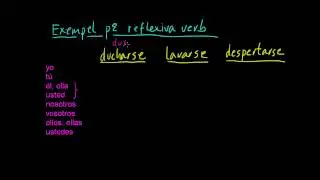 Exempel på reflexiva verb
ducharse lavarse despertarse
yo
tú
él, ella
usted
nosotros
vosotros
ellos, ellas
ustedes